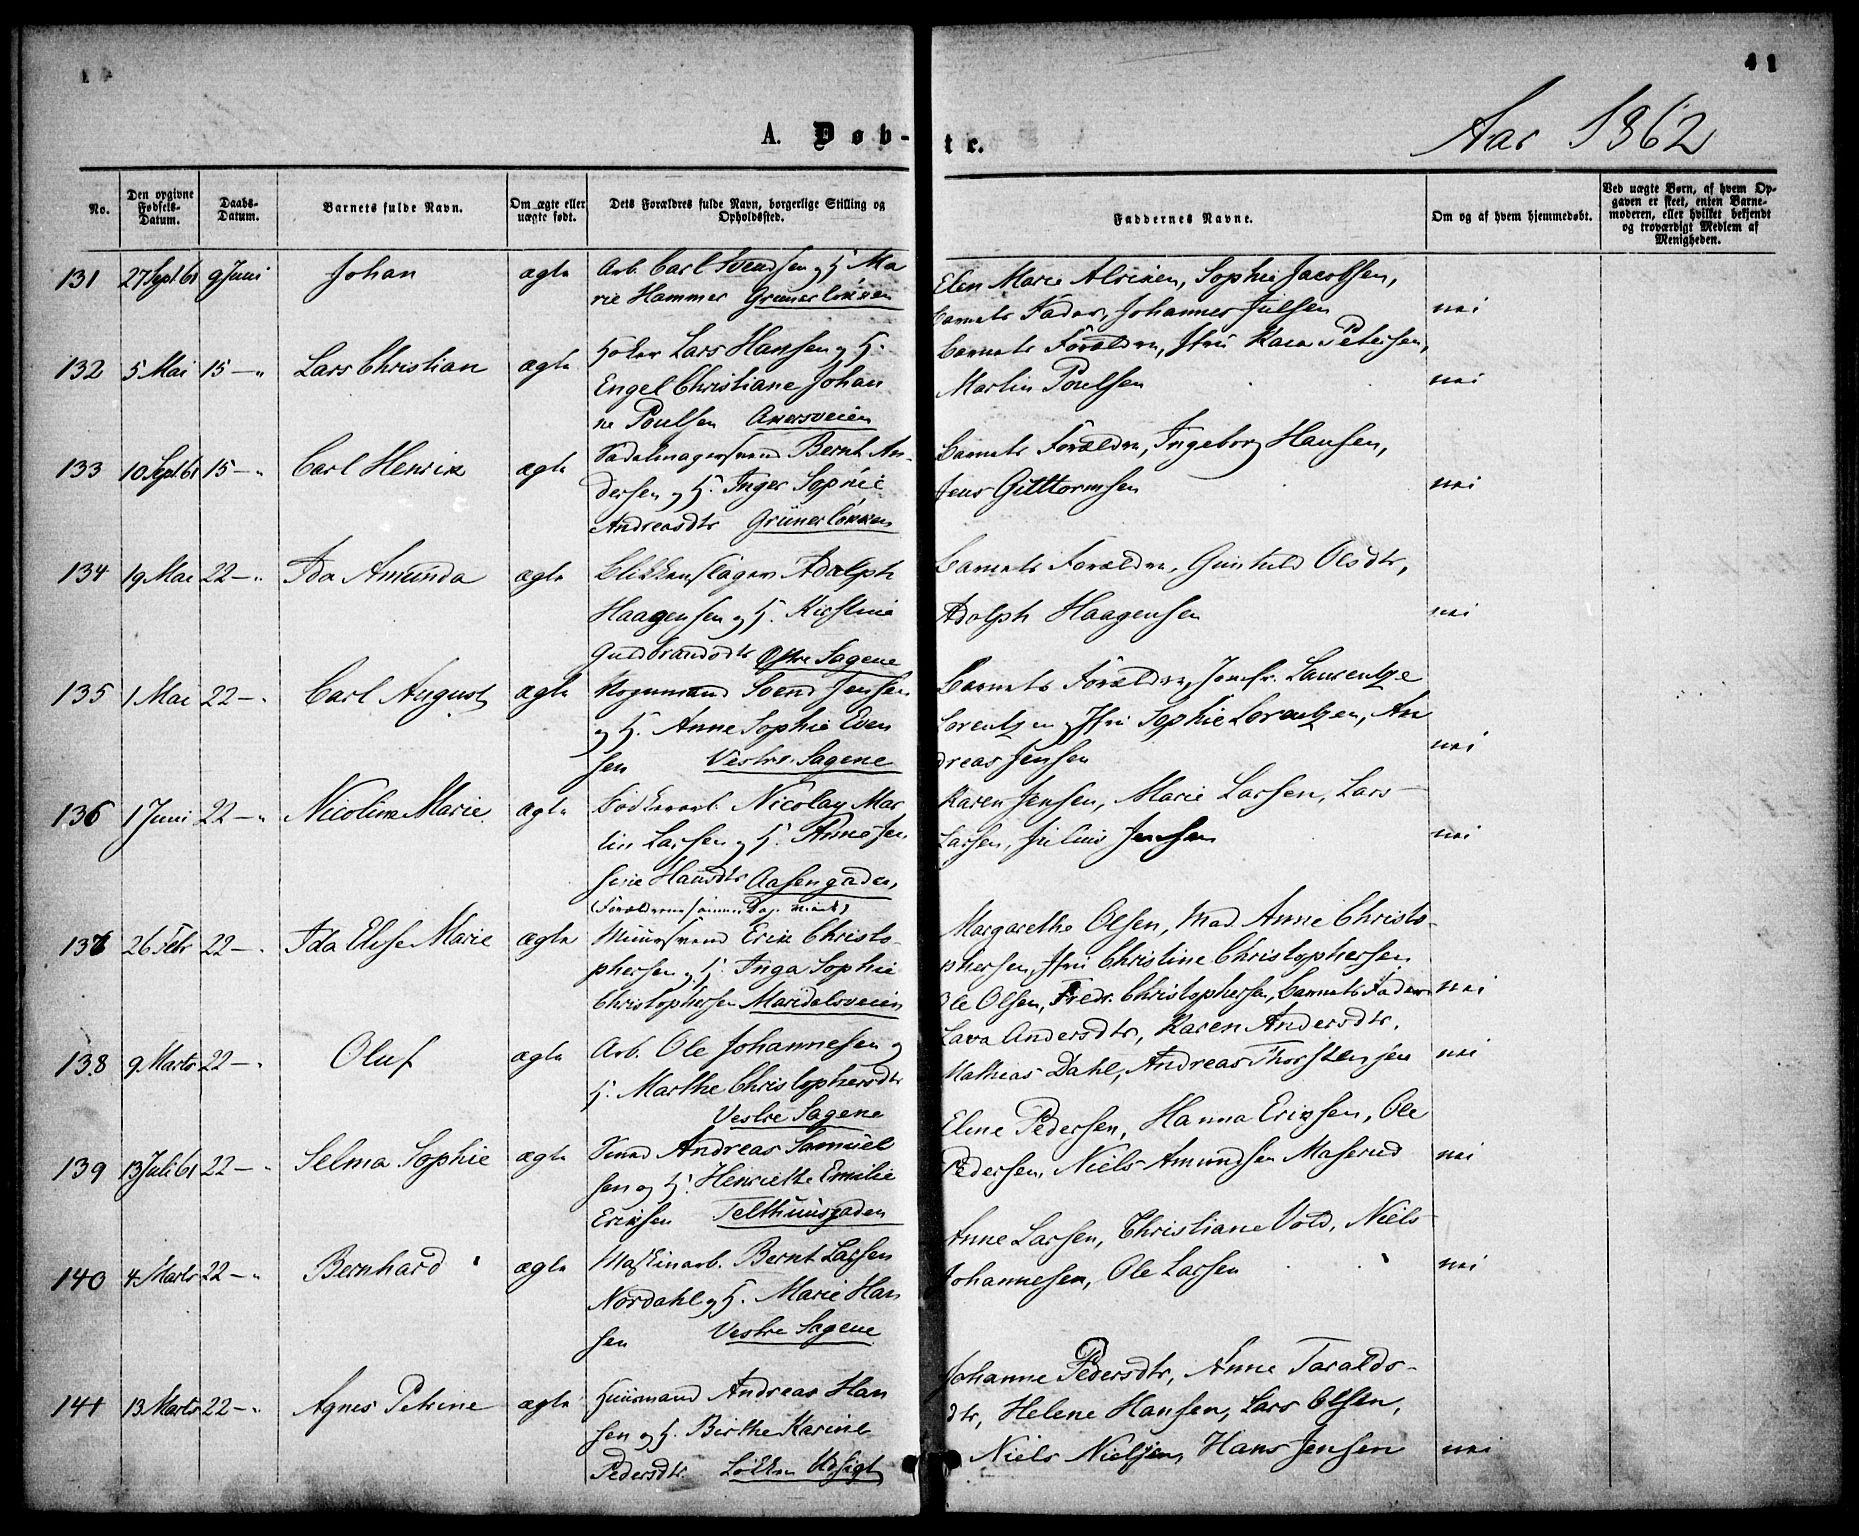 41
A. Døb-te.
Aar 1862
No.
Den opgivne Fødsels-Datum.
Daabs-Datum.
Barnets fulde Navn.
Om ægte eller uægte født.
Dets Forældres fulde Navn, borgerlige Stilling og Opholdssted.
Faddernes Navne.
Om og af hvem hjemmedøbt.
Ved uægte Børn, af hvem Opgaven er skeet, enten Barnemoderen, eller hvilket bekjendt og troværdigt Medlem af Menigheden.
131 27 Sept 61 9 Juni Johan ægte Arb. Carl Svendsen og H. Ma
rie Hammer Grünerløkken
Elen Marie Alvisen, Sophie Jacobsen,
Barnets Fader, Johannes Juelsen nei
132 5 Mai 15 — " Lars Christian ægte Høker Lars Hansen og H.
Engel Christiane Johan
ne Poulsen Akersveien
Barnets Forældre, Jfru Kaia Petersen,
Martin Poulsen nei
133 10 Sept 61 15 — " Carl Henrik ægte Sadelmagersvend Bernt An-
dersen og H. Inger Sophie
Andreasdtr Grünerløkken
Barnets Forældre, Ingeborg Hansen,
Jens Guttormsen nei
134 19 Mai 22 — " Ida Amunda ægte Blikkenslager Adolph
Haagensen og H. Kirstine
Guldbrandsdtr Østre Sagene
Barnets Forældre, Gunhild Olsdtr,
Adolph Haagensen nei
135 1 Mai 22 — " Carl August ægte Svend Jensen
og H. Anne Sophie Even
sen Vestre Sagene
Barnets Forældre, Jomfr. Laurentze
Lorentzen, Jfru Sophie Lorentzen, An
dreas Jensen nei
136 1 Juni 22 — " Nicoline Marie ægte Bødkerarb. Nicolay Mar
tin Larsen og H. Anne Jen
sine Hansdtr Aasengaden,
(Forældrene samme Dag viede)
Karen Jensen, Marie Larsen, Lars
Larsen, Julius Jensen nei
137 26 Febr 22 — " Ida Elise Marie ægte Muursvend Erik Christo-
phersen og H. Inga Sophie
Christophersen Maridalsveien
Margarethe Olsen, Mad. Anne Christo-
phersen, Jfru Christine Christophersen
Ole Olsen, Fredr. Christophersen, Barnets Fader nei
138 9 Marts 22 — " Oluf ægte Arb. Ole Johannesen og
H. Marthe Christophersdtr
Vestre Sagene
Lava Andersdtr, Karen Andersdtr,
Mathias Dahl, Andreas Thorstensen nei
139 13 Juli 61 22 — " Selma Sophie ægte Svend Andreas Samuel
sen og H. Henriette Emilie
Eriksen Telthuusgaden
Eline Pedersen, Hanna Eriksen, Ole
Pedersen, Niels Amundsen Maserud nei
140 4 Marts 22 — " Bernhard ægte Maskinarb. Bernt Larsen
Nordahl og H. Marie Han
sen Vestre Sagene
Anne Larsen, Christiane Vold, Niels
Johannesen, Ole Larsen nei
141 13 Marts 22 — " Agnes Petrine ægte Huusmand Andreas Han
sen og H. Birthe Karine
Pedersdtr Løkken Udsigt
Johanne Pedersdtr, Anne Taralds-
dtr, Helene Hansen, Lars Olsen,
Niels Nielsen, Hans Jensen nei